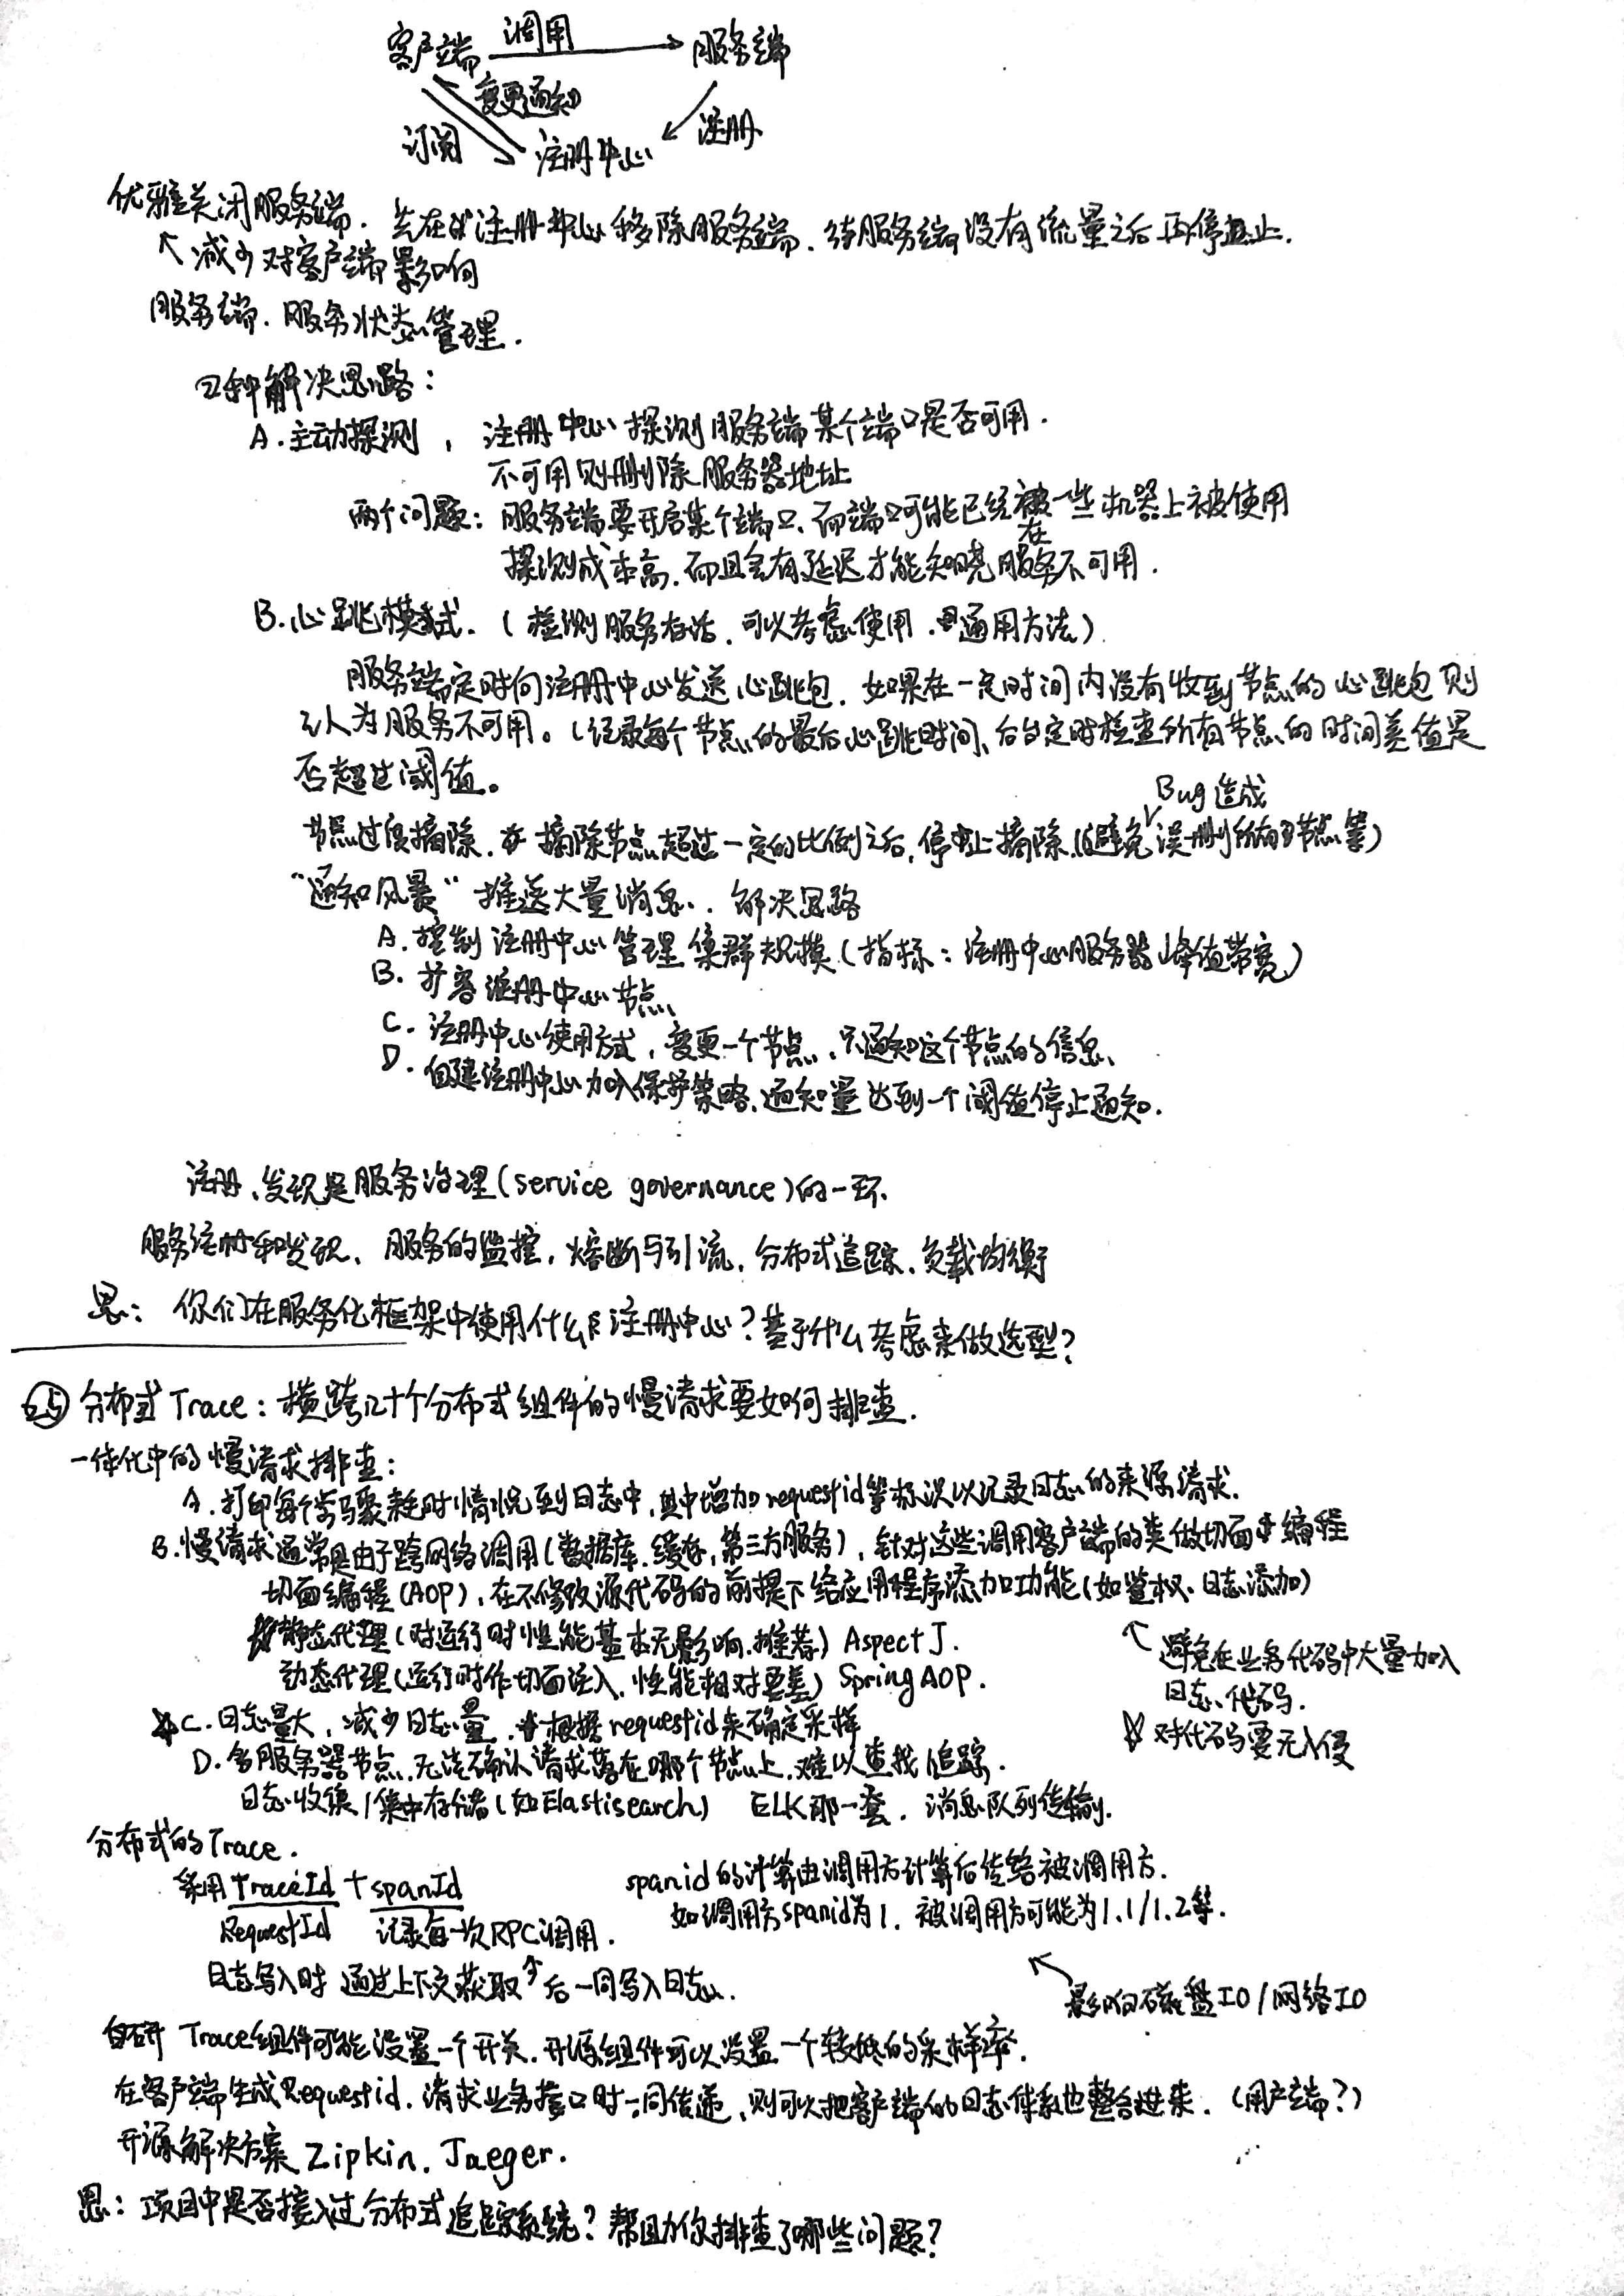 客户端 调用 服务端
变更通知
订阅 注册中心 注册
优雅关闭服务端. 先在注册中心移除服务端. 待服务端没有流量之后再停止.
减少对客户端影响
服务端. 服务状态管理.
2种解决思路:
A.主动探测, 注册中心探测服务端某个端口是否可用.
不可用则删除服务器地址
两个问题: 服务端要开启某个端口. 而端口可能已经在一些机器上被使用
探测成本高. 而且会有延迟才能知晓服务不可用.
B.心跳模式. (检测服务存活. 可以考虑使用. 通用方法)
服务端定时向注册中心发送心跳包. 如果在一定时间内没有收到节点的心跳包则
认为服务不可用。(记录每个节点的最后心跳时间、后台定时检查所有节点的时间差值是
否超过阈值。
Bug造成
节点过度摘除. 摘除节点超过一定的比例之后, 停止摘除.(避免误删所有节点等)
"通知风暴" 推送大量消息.. 解决思路
A. 控制注册中心管理集群规模(指标: 注册中心服务器峰值带宽)
B. 扩容注册中心节点
C. 注册中心使用方式, 变更一个节点, 只通知这个节点的信息
D. 自建注册中心加入保护策略. 通知量达到一个阈值停止通知.
注册、发现是服务治理(service governance)的一环.
服务注册和发现、服务的监控, 熔断与引流, 分布式追踪, 负载均衡
思: 你们在服务化框架中使用什么注册中心? 基于什么考虑来做选型?
25 分布式Trace: 横跨几十个分布式组件的慢请求要如何排查.
一体化中的慢请求排查:
A.打印每个步骤耗时情况到日志中, 其中增加requestid等标识以记录日志的来源请求.
B.慢请求通常是由于跨网络调用(数据库.缓存,第三方服务), 针对这些调用客户端的类做切面编程
切面编程(AOP), 在不修改源代码的前提下给应用程序添加功能(如鉴权、日志添加)
静态代理(对运行时性能基本无影响.推荐) AspectJ.
避免在业务代码中大量加入
动态代理(运行时作切面注入, 性能相对要差) Spring AOP.
日志代码.
C.日志量大, 减少日志量. 根据requestid来确定采样
对代码要无入侵
D.多服务器节点.无法确认请求落在哪个节点上.难以查找追踪.
日志收集/集中存储(如Elastisearch) ELK那一套. 消息队列传输.
分布式的Trace.
采用TraceId+spanId spanid的计算由调用方计算后传给被调用方.
RequestId 记录每一次RPC调用. 如调用方spanid为1. 被调用方可能为1.1/1.2等.
日志写入时 通过上下文获取↑后一同写入日志.
影响磁盘IO/网络IO
自研Trace组件可能设置一个开关.开源组件可以设置一个较低的采样率.
在客户端生成Requestid. 请求业务接口时一同传递,则可以把客户端的日志体系也整合进来. (用户端?)
开源解决方案 Zipkin. Jaeger.
思: 项目中是否接入过分布式追踪系统? 帮助你排查了哪些问题?